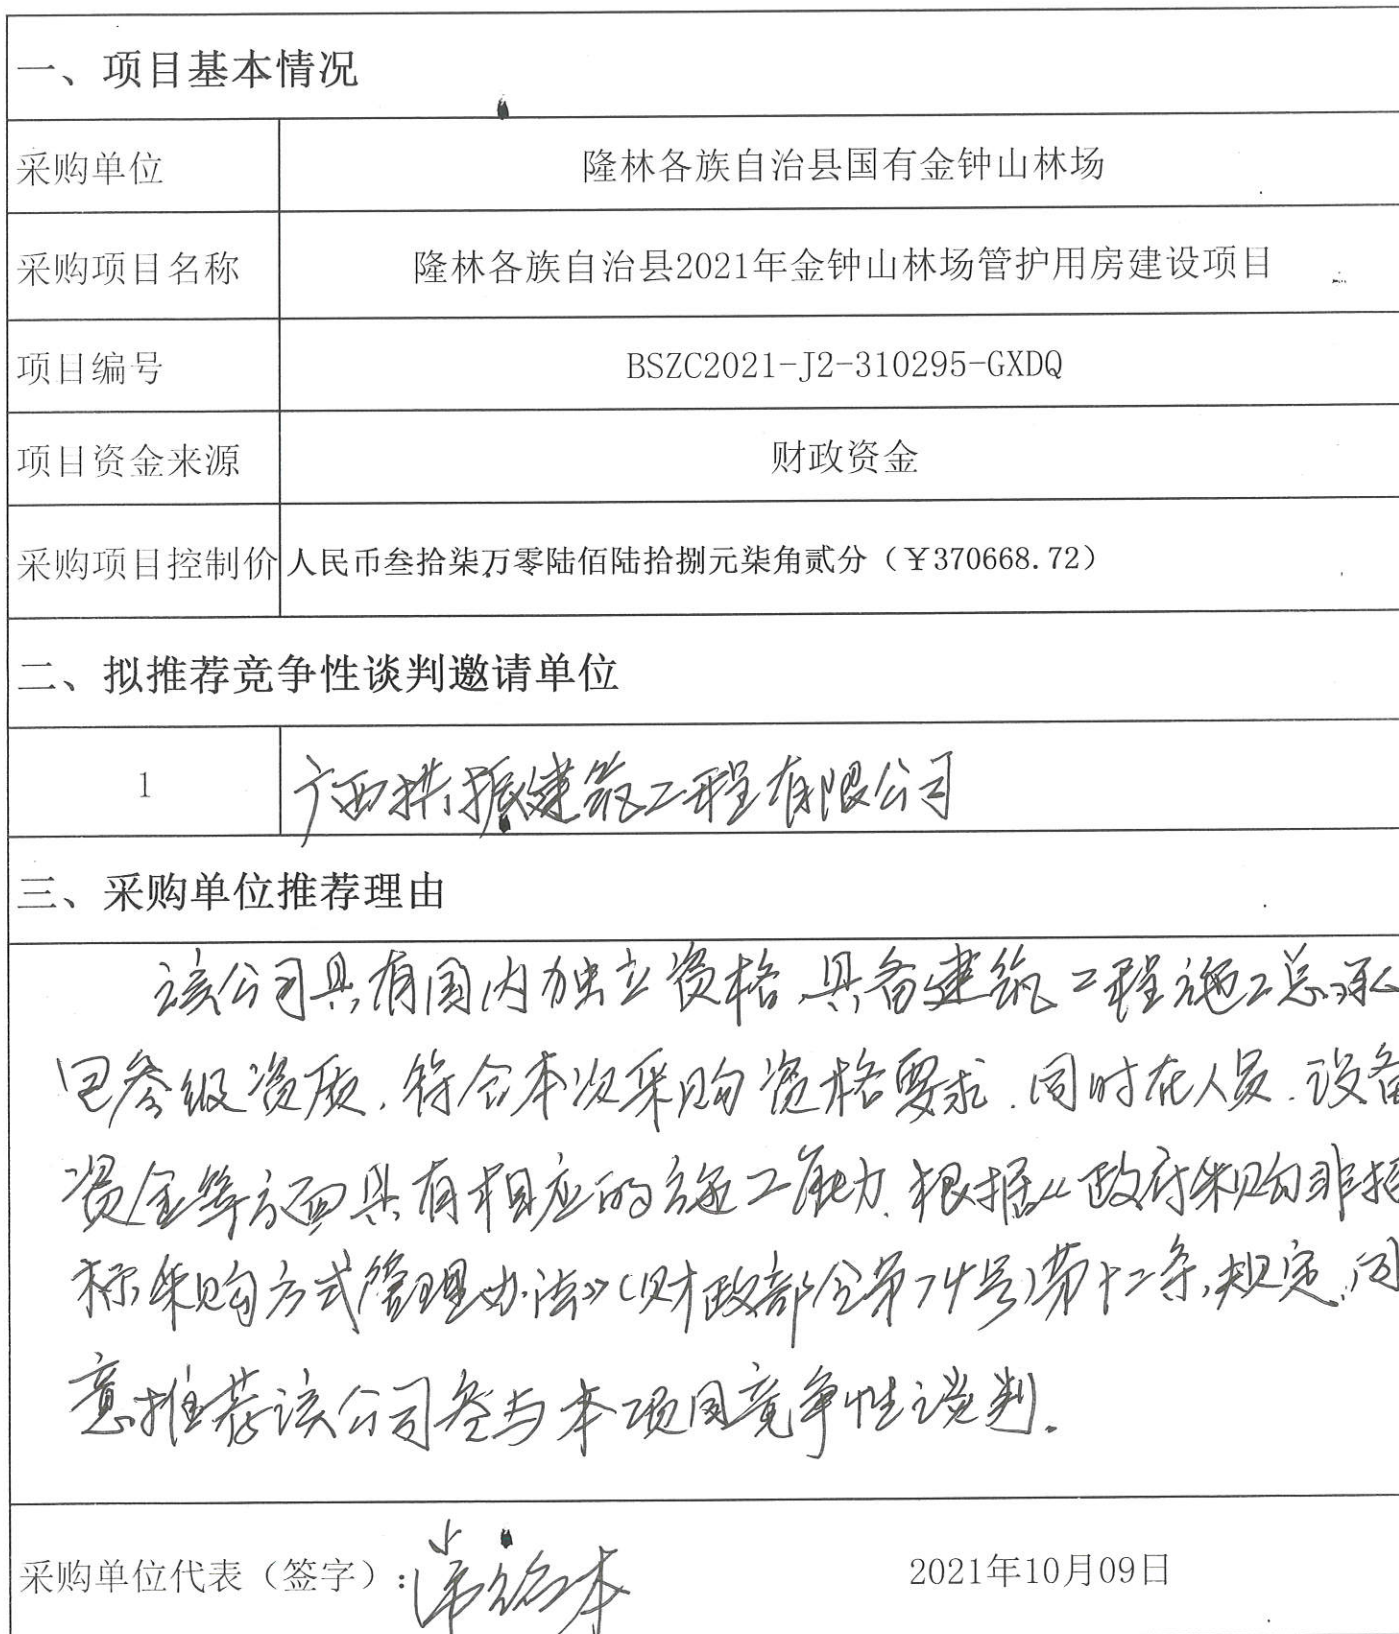 一、项目基本情况
采购单位 隆林各族自治县国有金钟山林场
采购项目名称 隆林各族自治县2021年金钟山林场管护用房建设项目
项目编号 BSZC2021-J2-310295-GXDQ
项目资金来源 财政资金
采购项目控制价 人民币叁拾柒万零陆佰陆拾捌元柒角贰分（￥370668.72）
二、拟推荐竞争性谈判邀请单位
1 广西拱振建筑工程有限公司
三、采购单位推荐理由
该公司具有国内独立资格、具备建筑工程施工总承
包叁级资质、符合本次采购资格要求.同时在人员.设备
资金等方面具有相应的施工能力.根据《政府采购非招
标采购方式管理办法》(财政部令第74号)第十二条,规定,同
意推荐该公司参与本项目竞争性谈判.
采购单位代表（签字）: 2021年10月09日